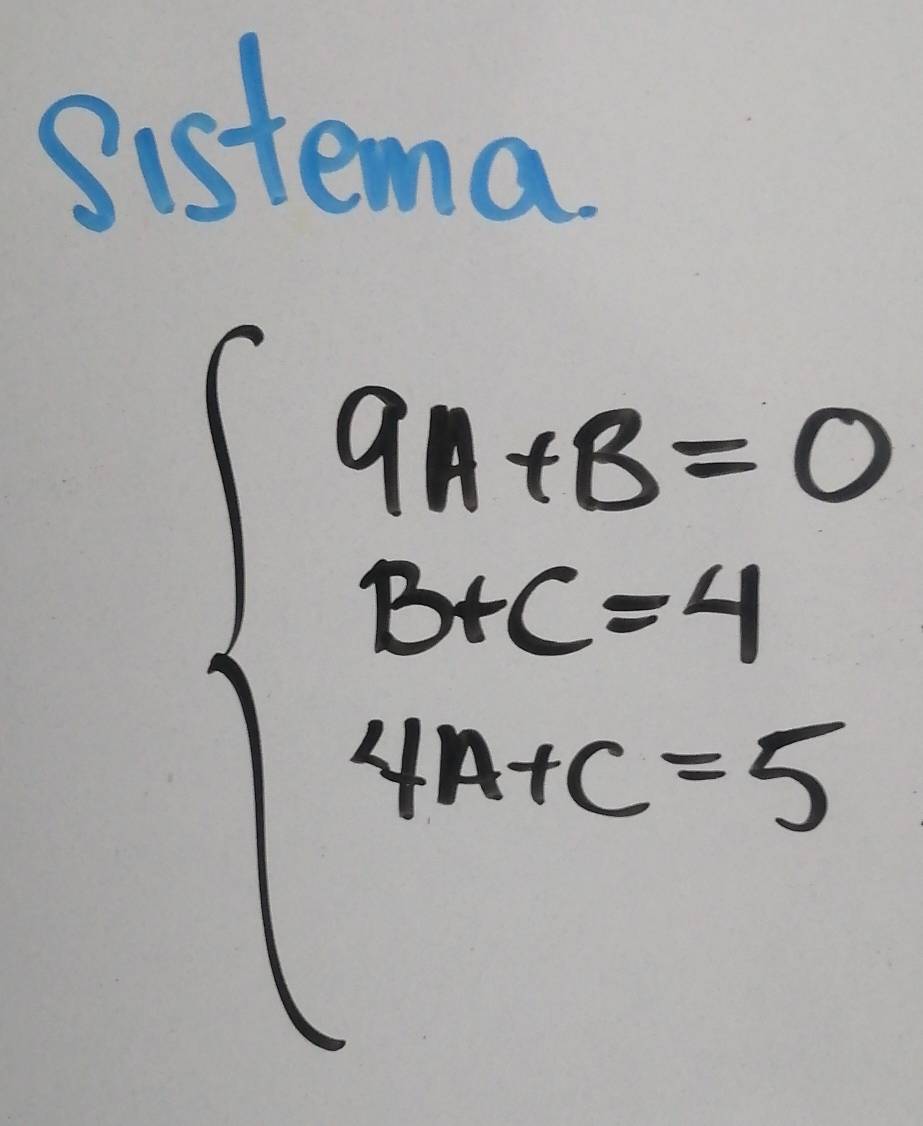 Sistema.
9A+B=0
B+C=4
4A+C=5